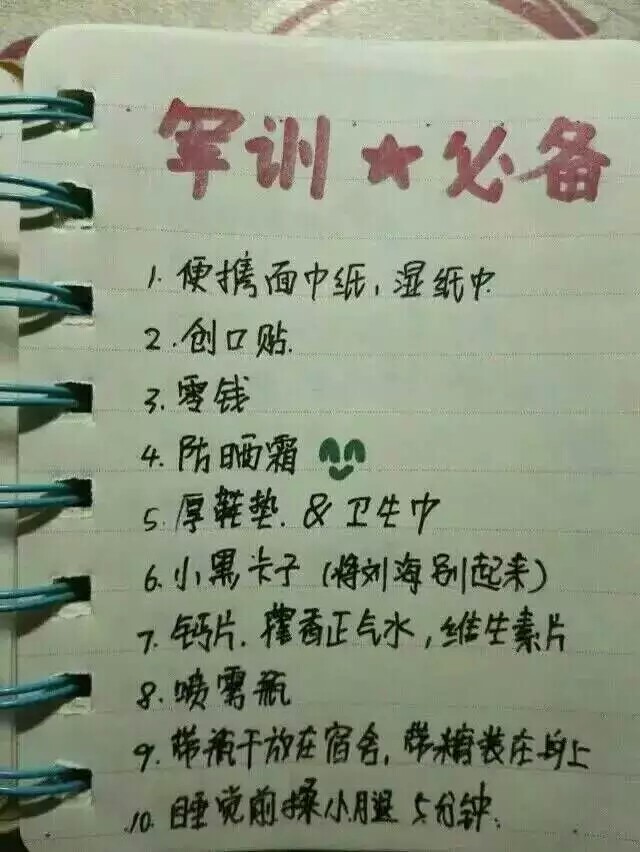 军训★必备
1. 便携面巾纸, 湿纸巾
2. 创口贴.
3. 零钱
4. 防晒霜
5. 厚鞋垫. & 卫生巾
6. 小黑卡子 (将刘海别起来)
7. 钙片. 藿香正气水, 维生素片
8. 喷雾瓶
9. 带瓶干放在宿舍, 带糖装在身上
10. 睡觉前揉小腿 5分钟.